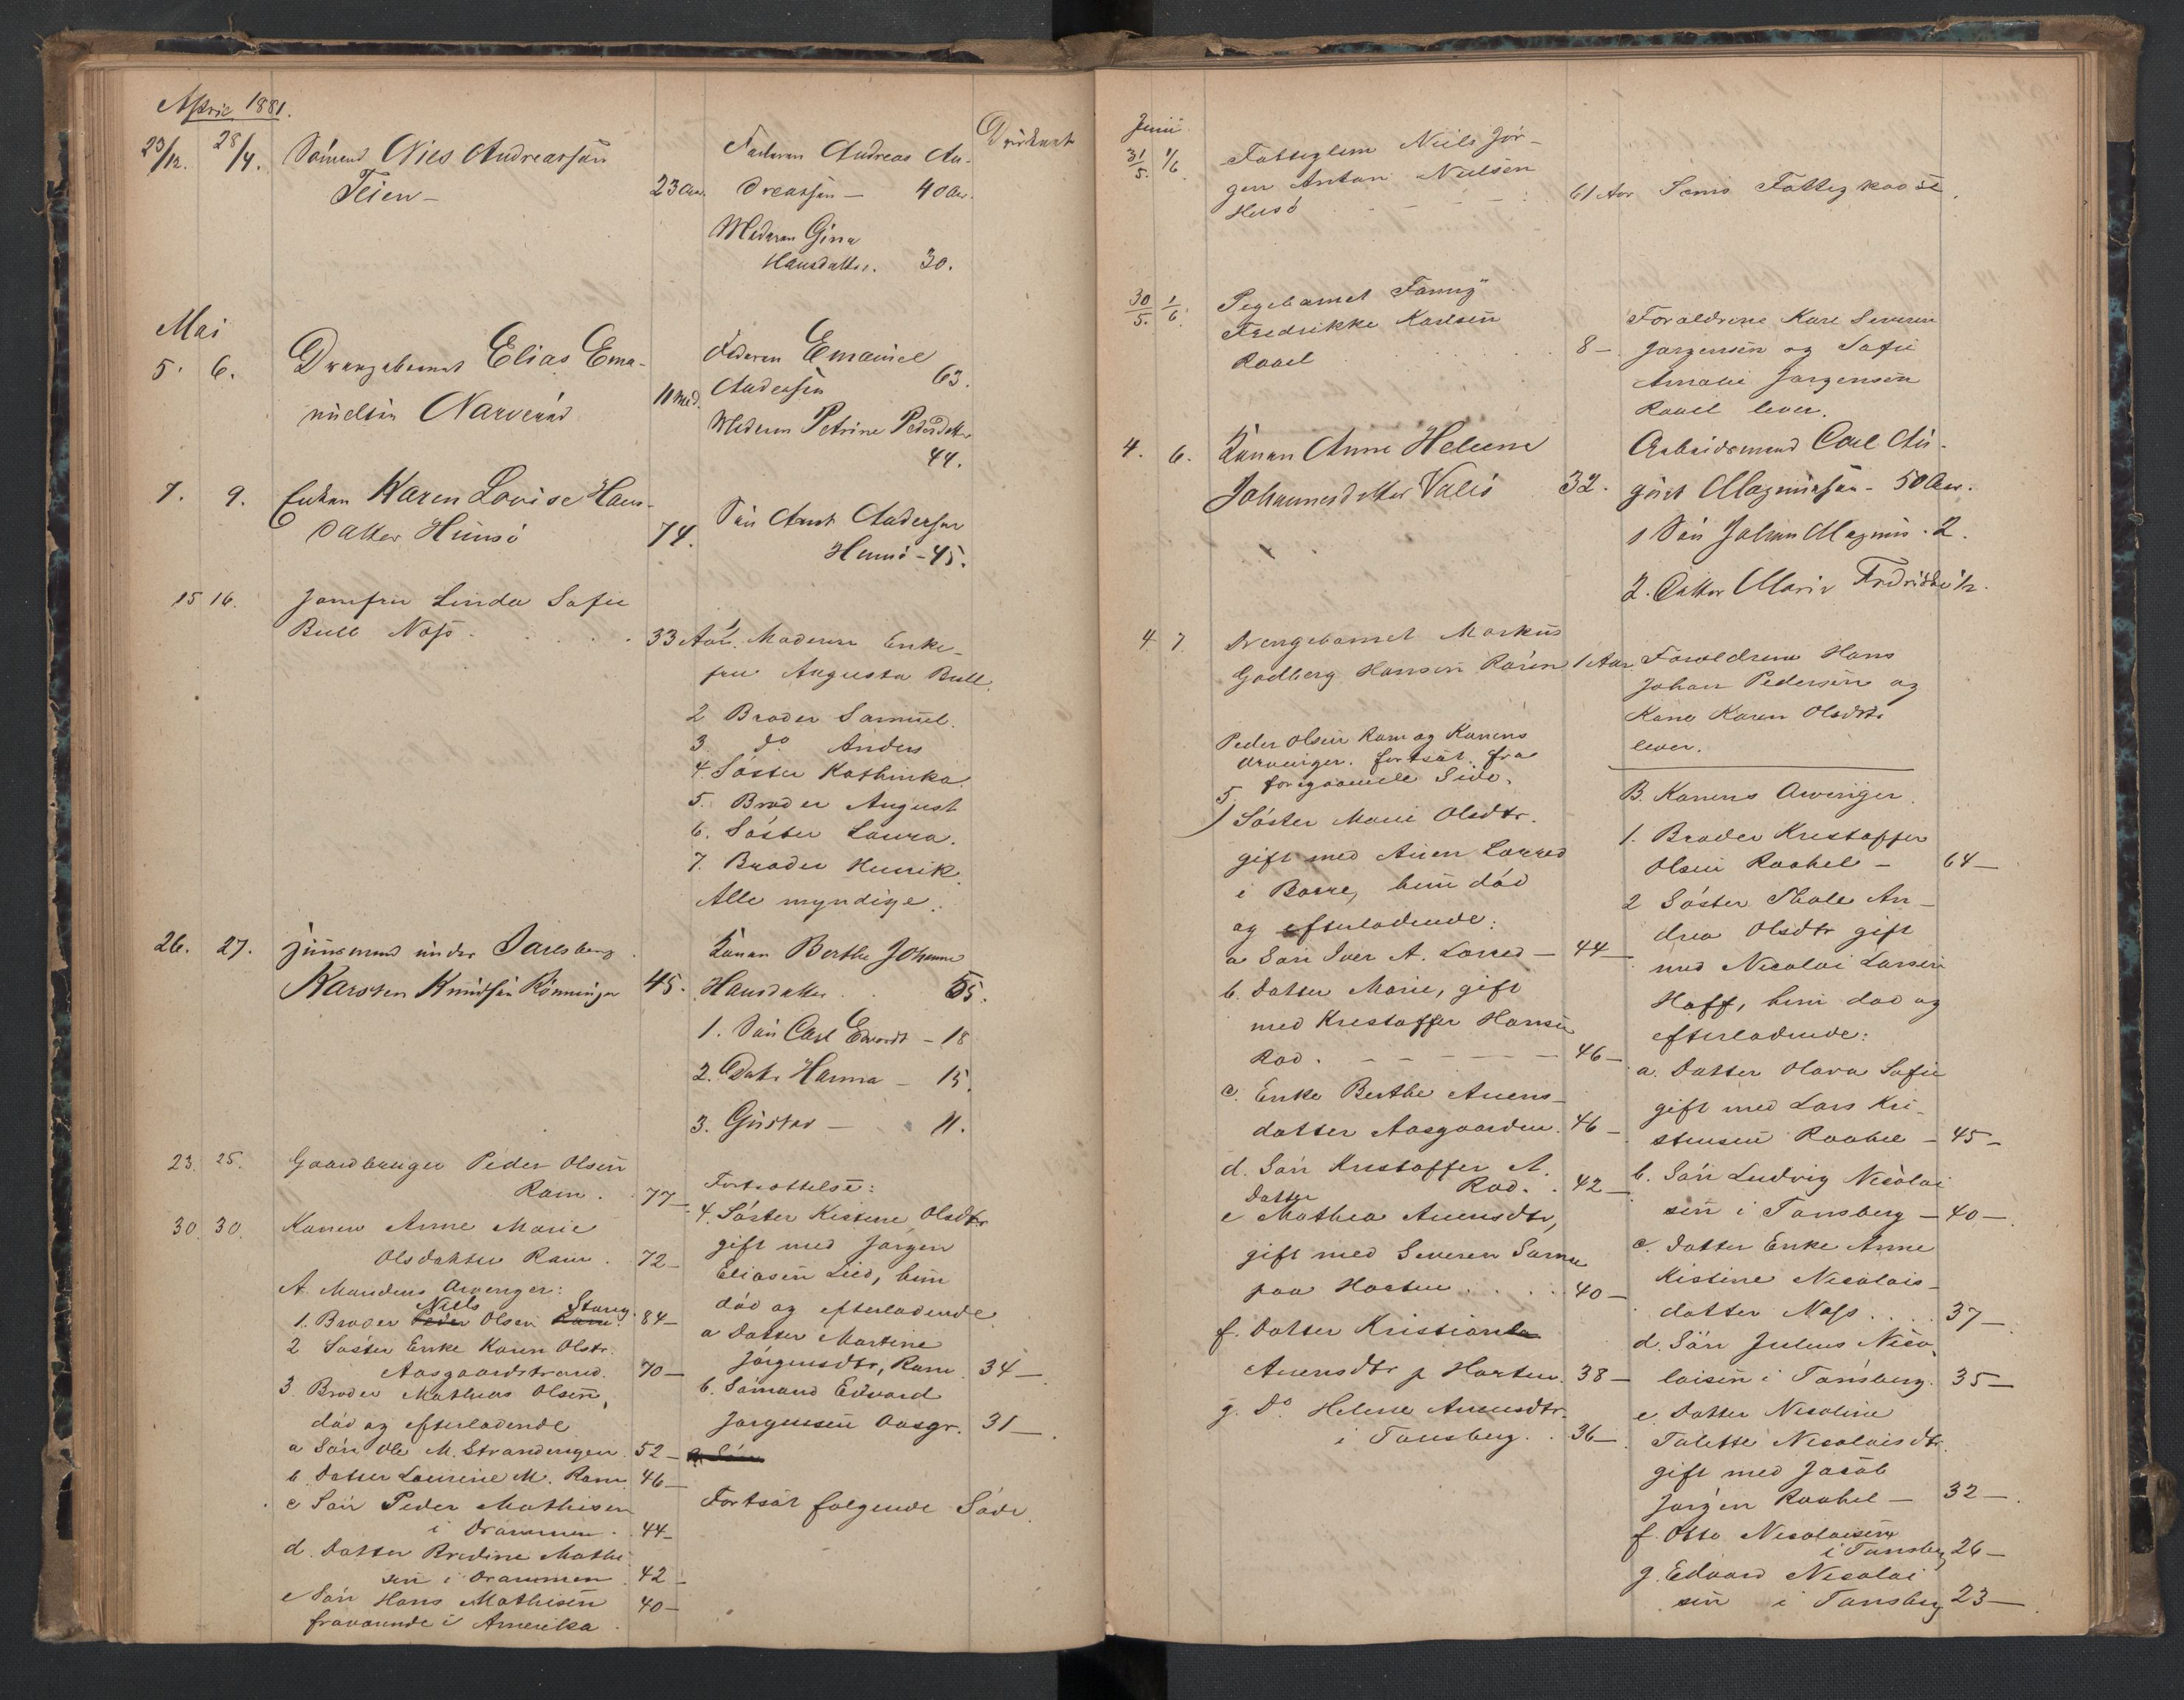 April 1881.
23/12. 28/4. Sömand Nils Andreassön
Teien – 23 Aar.
Faderen Andreas An-
dreassön – 40 Aar.
Moderen Gina
Hansdatter. 30.
Druknet
Mai
5. 6. Drengebarnet Elias Ema-
nuelsen Narverød 11 Md.
Faderen Emanuel
Andersen 63.
Moderen Petrine Pedersdatter
44.
7. 9. Enken Karen Lovise Hans-
datter Husö 74.
Sön Anders
Husö – 45.
15 16. Jomfru Linda Sofie
Bull Næs . . . . . 33 Aar.
1 Moderen Enke-
fru Augusta Bull.
2 Broder Samuel.
3. do Anders
4. Söster Kathinka.
5. Broder August
6. Söster Laura.
7. Broder Henrik.
Alle myndige.
26. 27. under Jarlsberg
Karsten Knudsön Rönningen 45.
Konen Berthe Johanne
Hansdatter 55.
1. Sön Carl Edvardt – 18
2. Datr. Hanna – 15.
3. Gustav – 11.
23. 25. Gaardbruger Peder Olsen
Ram . 77 –
30. 30. Konen Anne Marie
Olsdatter Ram . 72 –
A. Mandens Arvinger:
1. Broder Peder Niels Olsen Ram 84 –
2 Söster Enke Karen Olsdtr.
Aasgaardstrand. 70 –
3. Broder Mathias Olsen,
död og efterladende
a Sön Ole M. Strandengen. 52 –
b. Datter Laurine M. Ram. 46 –
c Sön Peder Mathisen
i Drammen . 44 –
d. Datter Bredine Mathi-
sen i Drammen . 42 –
e Sön Hans Mathisen 40 –
fraværende i Amerika .
Fortsættelse:
4. Söster Kistine Olsdtr
gift med Jørgen
Eliasen Lied, hun
död og efterladende
a Datter Martine
Jørgensdtr, Ram . 34 –
b. Sømand Edvard
Jørgensen Aasgr. 31 –
a. Sön
Fortsat følgende Side.
Juni
31/5. 1/6. Fattiglem Niels Jör-
gen Anton Nielsen
Husö . . . . . 61 Aar
Sems Fattigkasse.
30/5. 1/6. Pigebarnet Fanny
Fredrikke Karlsen
Rael . . . . . 8 –
Forældrene Karl Severin
Jørgensen og Sofie
Amalie Jørgensen
Rael lever.
4. 6. Konen Anne Helene
Johannesdatter Valø 32.
Arbeidsmand Carl Au-
gust Magnussön – 50 Aar.
1 Sön Johan Magnus . 2.
2. Datter Marie Fredrikke 1/2.
4. 7. Drengebarnet Markus
Godberg Hansen Raaen 1 Aar
Forældrene Hans
Johan Pedersen og
Kone Karen Olsdtr
lever.
Peder Olsen Ram og Konens
Arvinger. fortsat fra
foregaaende Side.
5) Söster Marie Olsdtr.
gift med Anen Larred
i Borre, hun död
og efterladende:
a Sön Iver A. Larred – 44 –
b. Datter Marie, gift
med Kristoffer Hansen
Rød . – – – – – 46 –
c. Enke Berthe Anens-
datter Aasgaarden . 46 –
d. Sön Kristoffer A.
Rød . . 42 –
e Datter Mathea Anensdtr,
gift med Severin
paa Horten . . . . 40 –
f. Datter Kristiane
Anensdtr p Horten. 38 –
g. Do Helene Anensdtr.
i Tønsberg. . 36 –
B. Konens Arvinger.
1. Broder Kristoffer
Olsen Raahel – 64 –
2 Söster Thale An-
drea Olsdtr gift
med Nicolai Larsen
Hoff, hun död og
efterladende:
a. Datter Olava Sofie
gift med Lars Kri-
stensen Raahel – 45 –
b. Sön Ludvig Nicolai-
sen i Tønsberg – 40 –
c. Datter Enke Anne
Kistine Nicolais-
datter Næs . . . . 37 –
d. Sön Julius Nico-
laisen i Tønsberg. 35 –
e. Datter Nicoline
Talette Nicolaisdtr.
gift med Jacob
Jørgen Raahel – 32 –
f. Otto Nicolaisen
i Tønsberg 26 –
g. Edvard Nicolai-
sen i Tønsberg 23 –